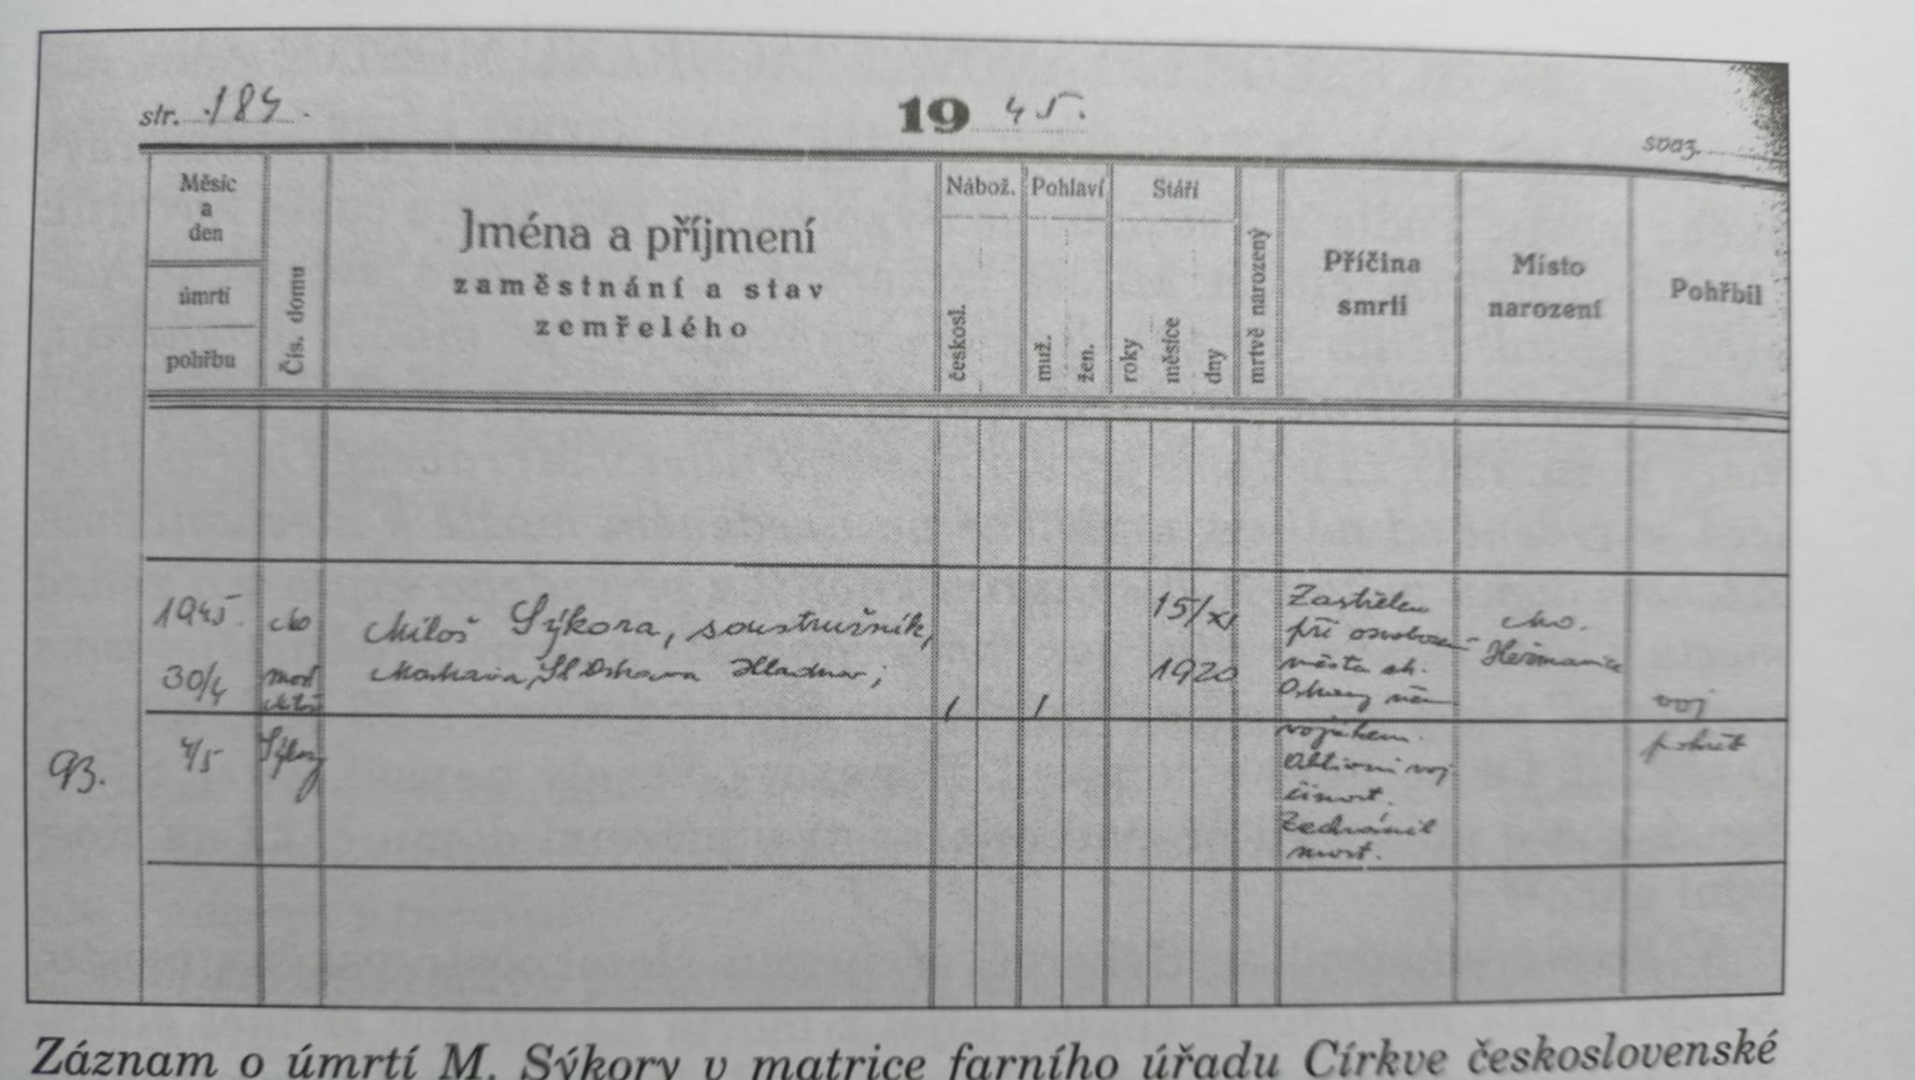 str. 184.
19 45.
svaz.
Měsíc
a
den
úmrtí
pohřbu
Čís. domu
Jména a příjmení
zaměstnání a stav
zemřelého
Nábož.
českosl.
Pohlaví
muž.
žen.
Stáří
roky
měsíce
dny
mrtvě narozený
Příčina
smrti
Místo
narození
Pohřbil
1945.
30/4
4/5
93.
Mo
most
Miloš
Sýkory
Miloš Sýkora, soustružník,
Sl Ostrava Hladnov;
15/XI
1920
Zastřelen
při osvobození
města
Ostravy něm
vojákem.
Aktivní voj
činnost.
Zachránil
most.
Mo.
Heřmanice
voj
pohřeb
Záznam o úmrtí M. Sýkory v matrice farního úřadu Církve československé